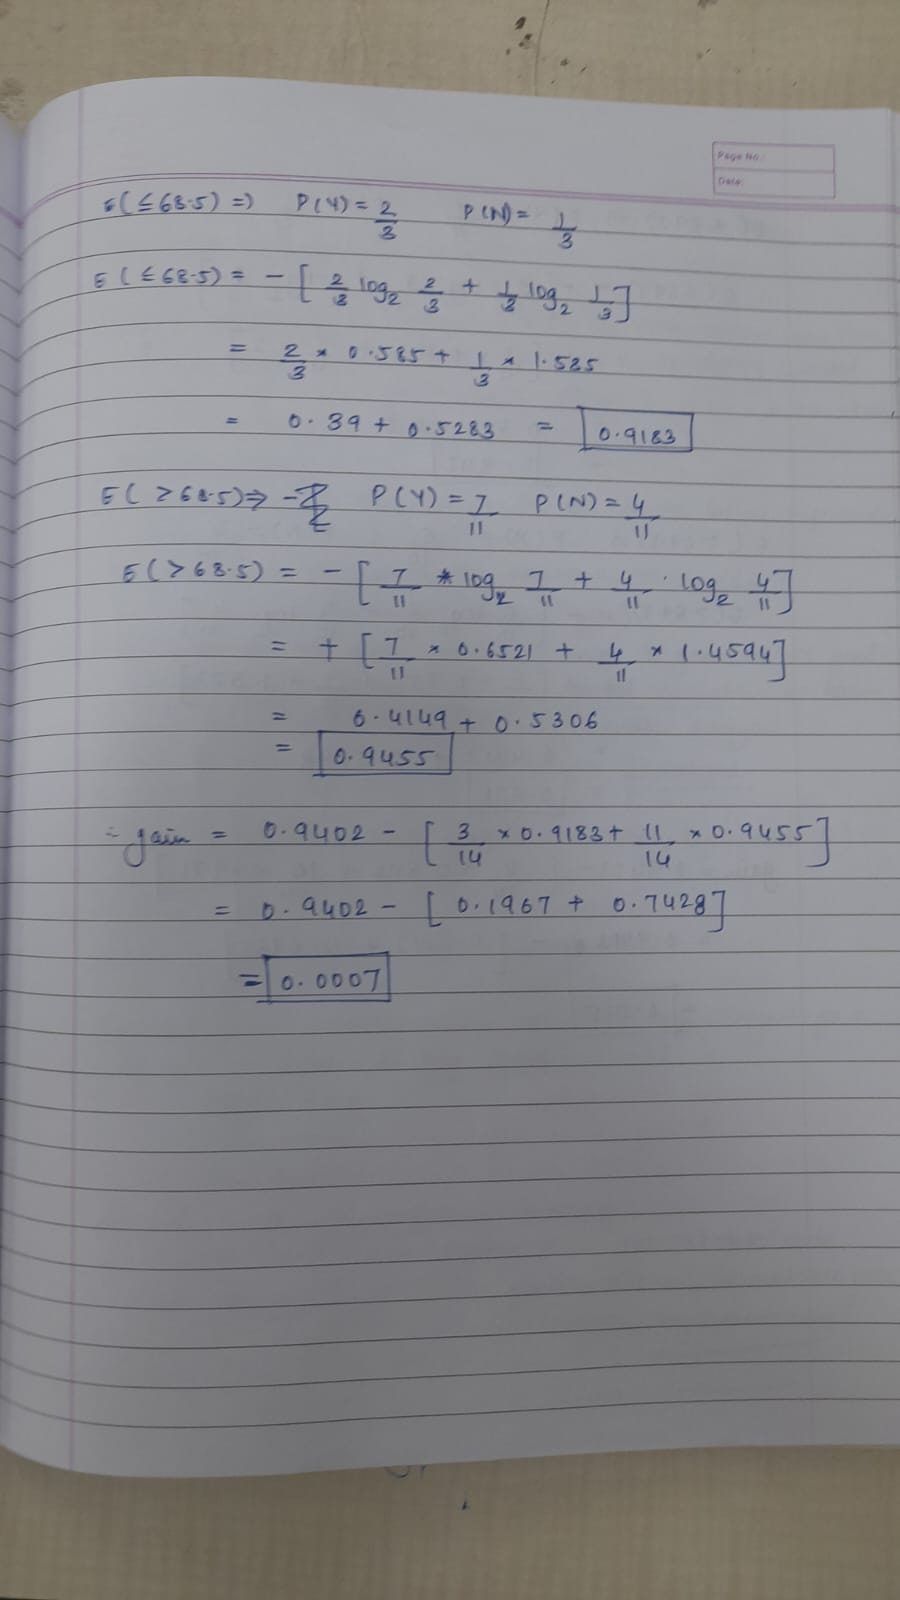 Page No.:
Date:
E(≤68.5) ⇒ P(Y) = 2/3 P(N) = 1/3
E(≤68.5) = - [2/3 log₂ 2/3 + 1/3 log₂ 1/3]
= 2/3 * 0.585 + 1/3 * 1.585
= 0.39 + 0.5283 = 0.9183
E(>68.5) ⇒ - P(Y) = 7/11 P(N) = 4/11
E(>68.5) = - [7/11 * log₂ 7/11 + 4/11 · log₂ 4/11]
= + [7/11 * 0.6521 + 4/11 * 1.4594]
= 0.4149 + 0.5306
= 0.9455
∴ gain = 0.9402 - [3/14 × 0.9183 + 11/14 × 0.9455]
= 0.9402 - [0.1967 + 0.7428]
= 0.0007